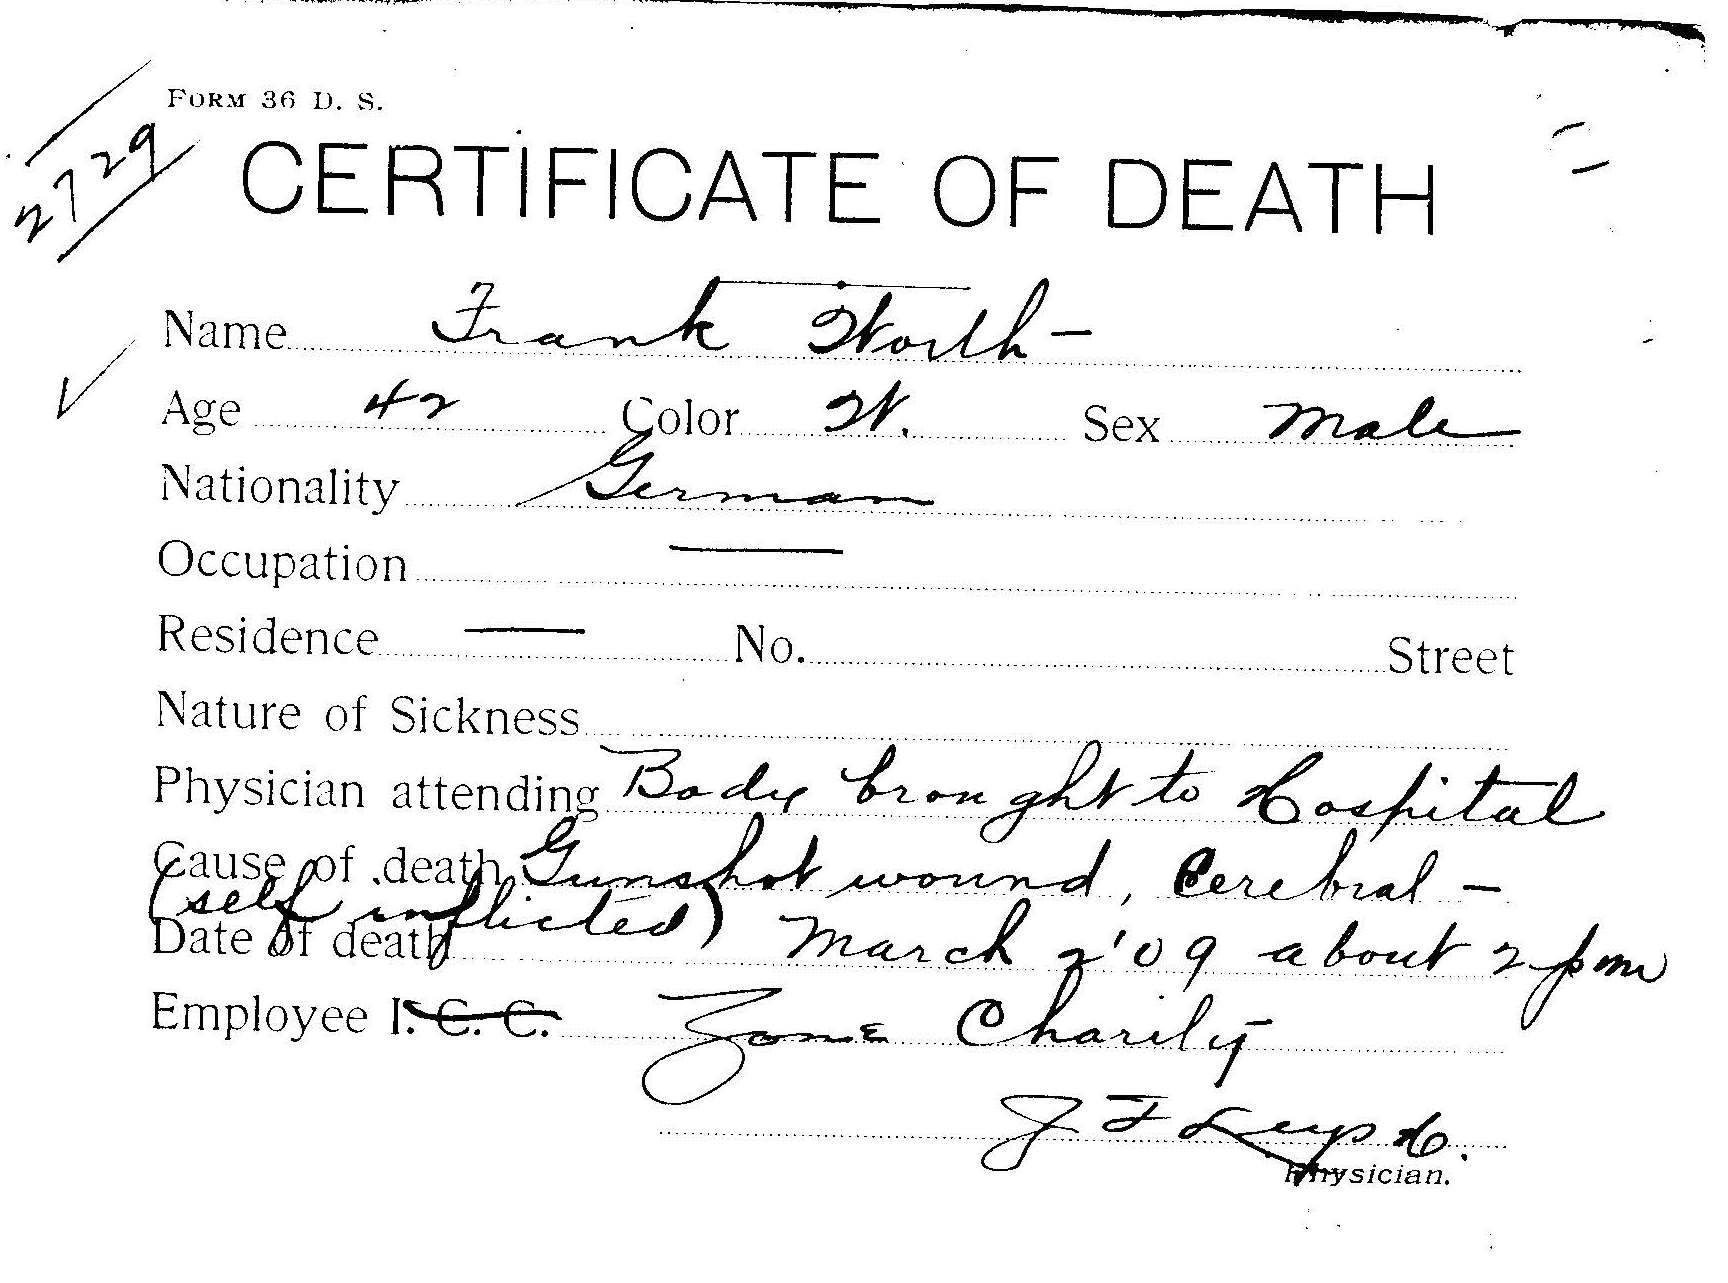 FORM 36 D. S.
2729
CERTIFICATE OF DEATH
Name Frank Worth -
Age 42 Color W. Sex Male
Nationality German
Occupation —
Residence — No. Street
Nature of Sickness
Physician attending Body brought to Hospital
Cause of death Gunshot wound, Cerebral -
(self inflicted)
Date of death March 2 '09 about 2 pm
Employee I. C. C. Zone Charity
J F
Physician.